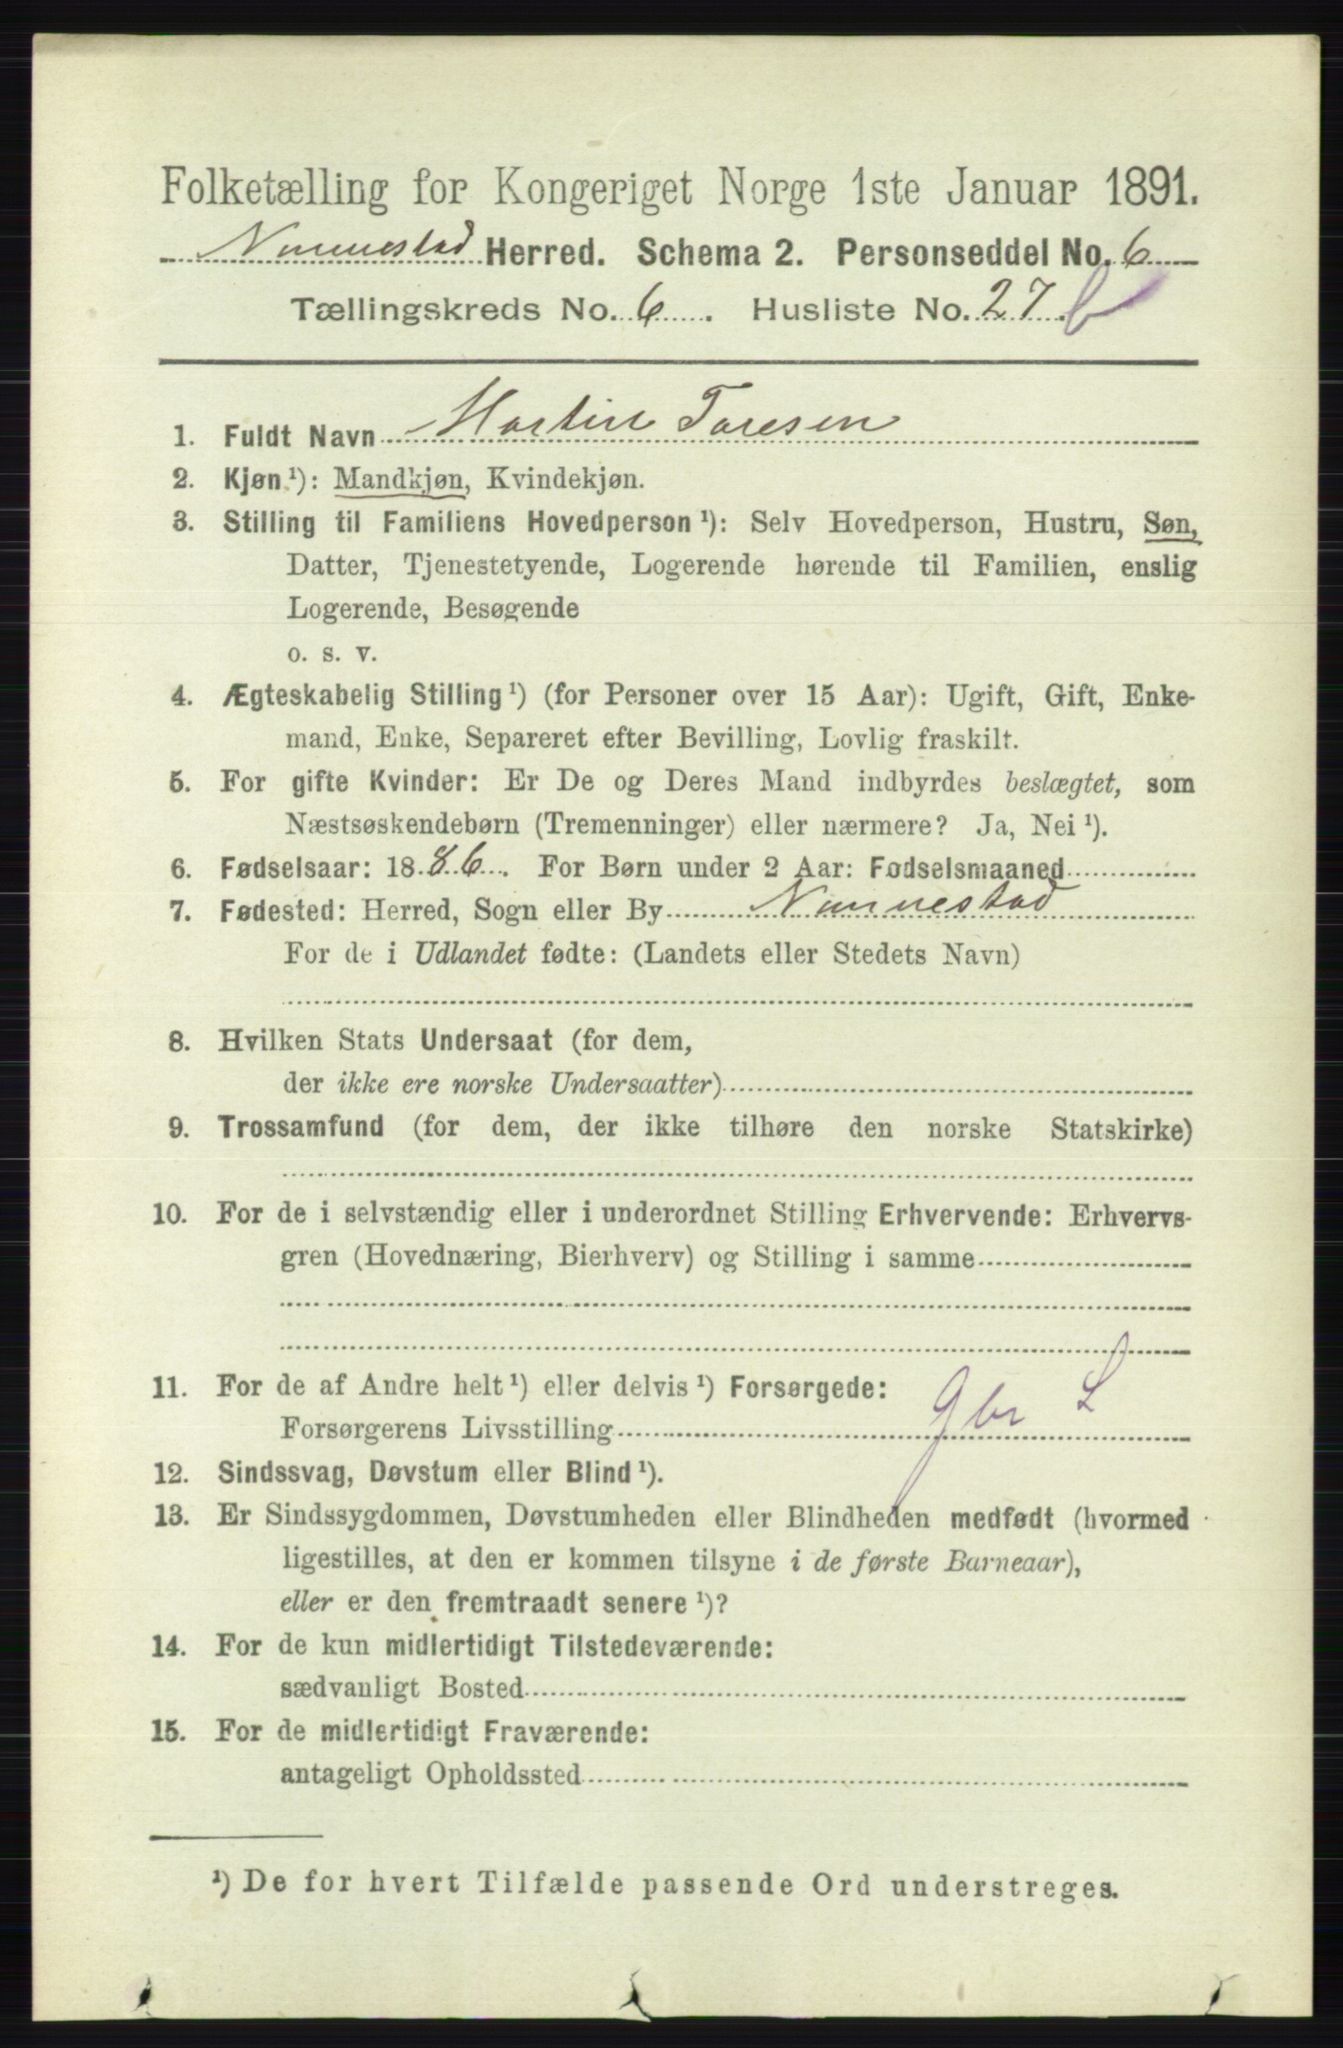 Folketælling for Kongeriget Norge 1ste Januar 1891.
Nannestad Herred. Schema 2. Personseddel No. 6
Tællingskreds No. 6. Husliste No. 27 b
1. Fuldt Navn Martin Toresen
2. Kjøn ¹): Mandkjøn, Kvindekjøn.
3. Stilling til Familiens Hovedperson ¹): Selv Hovedperson, Hustru, Søn,
Datter, Tjenestetyende, Logerende hørende til Familien, enslig
Logerende, Besøgende
o. s. v.
4. Ægteskabelig Stilling ¹) (for Personer over 15 Aar): Ugift, Gift, Enke-
mand, Enke, Separeret efter Bevilling, Lovlig fraskilt.
5. For gifte Kvinder: Er De og Deres Mand indbyrdes beslægtet, som
Næstsøskendebørn (Tremenninger) eller nærmere? Ja, Nei ¹).
6. Fødselsaar: 1886. For Børn under 2 Aar: Fødselsmaaned
7. Fødested: Herred, Sogn eller By Nannestad
For de i Udlandet fødte: (Landets eller Stedets Navn)
8. Hvilken Stats Undersaat (for dem,
der ikke ere norske Undersaatter)
9. Trossamfund (for dem, der ikke tilhøre den norske Statskirke)
10. For de i selvstændig eller i underordnet Stilling Erhvervende: Erhvervs-
gren (Hovednæring, Bierhverv) og Stilling i samme
11. For de af Andre helt ¹) eller delvis ¹) Forsørgede:
Forsørgerens Livsstilling Gbr L
12. Sindssvag, Døvstum eller Blind ¹).
13. Er Sindssygdommen, Døvstumheden eller Blindheden medfødt (hvormed
ligestilles, at den er kommen tilsyne i de første Barneaar),
eller er den fremtraadt senere ¹)?
14. For de kun midlertidigt Tilstedeværende:
sædvanligt Bosted
15. For de midlertidigt Fraværende:
antageligt Opholdssted
¹) De for hvert Tilfælde passende Ord understreges.